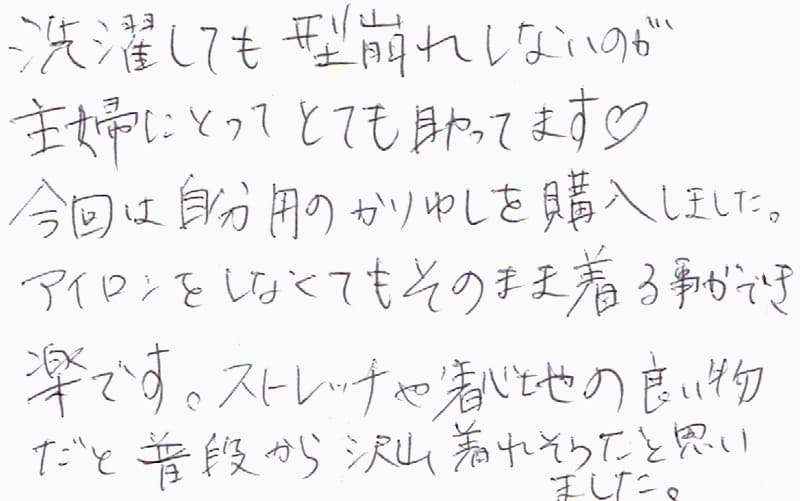 洗濯しても型崩れしないのが
主婦にとってとても助ってます♡
今回は自分用のかりゆしを購入しました。
アイロンをしなくてもそのまま着る事ができ
楽です。ストレッチや着心地の良い物
だと普段から沢山着れそうだと思い
ました。